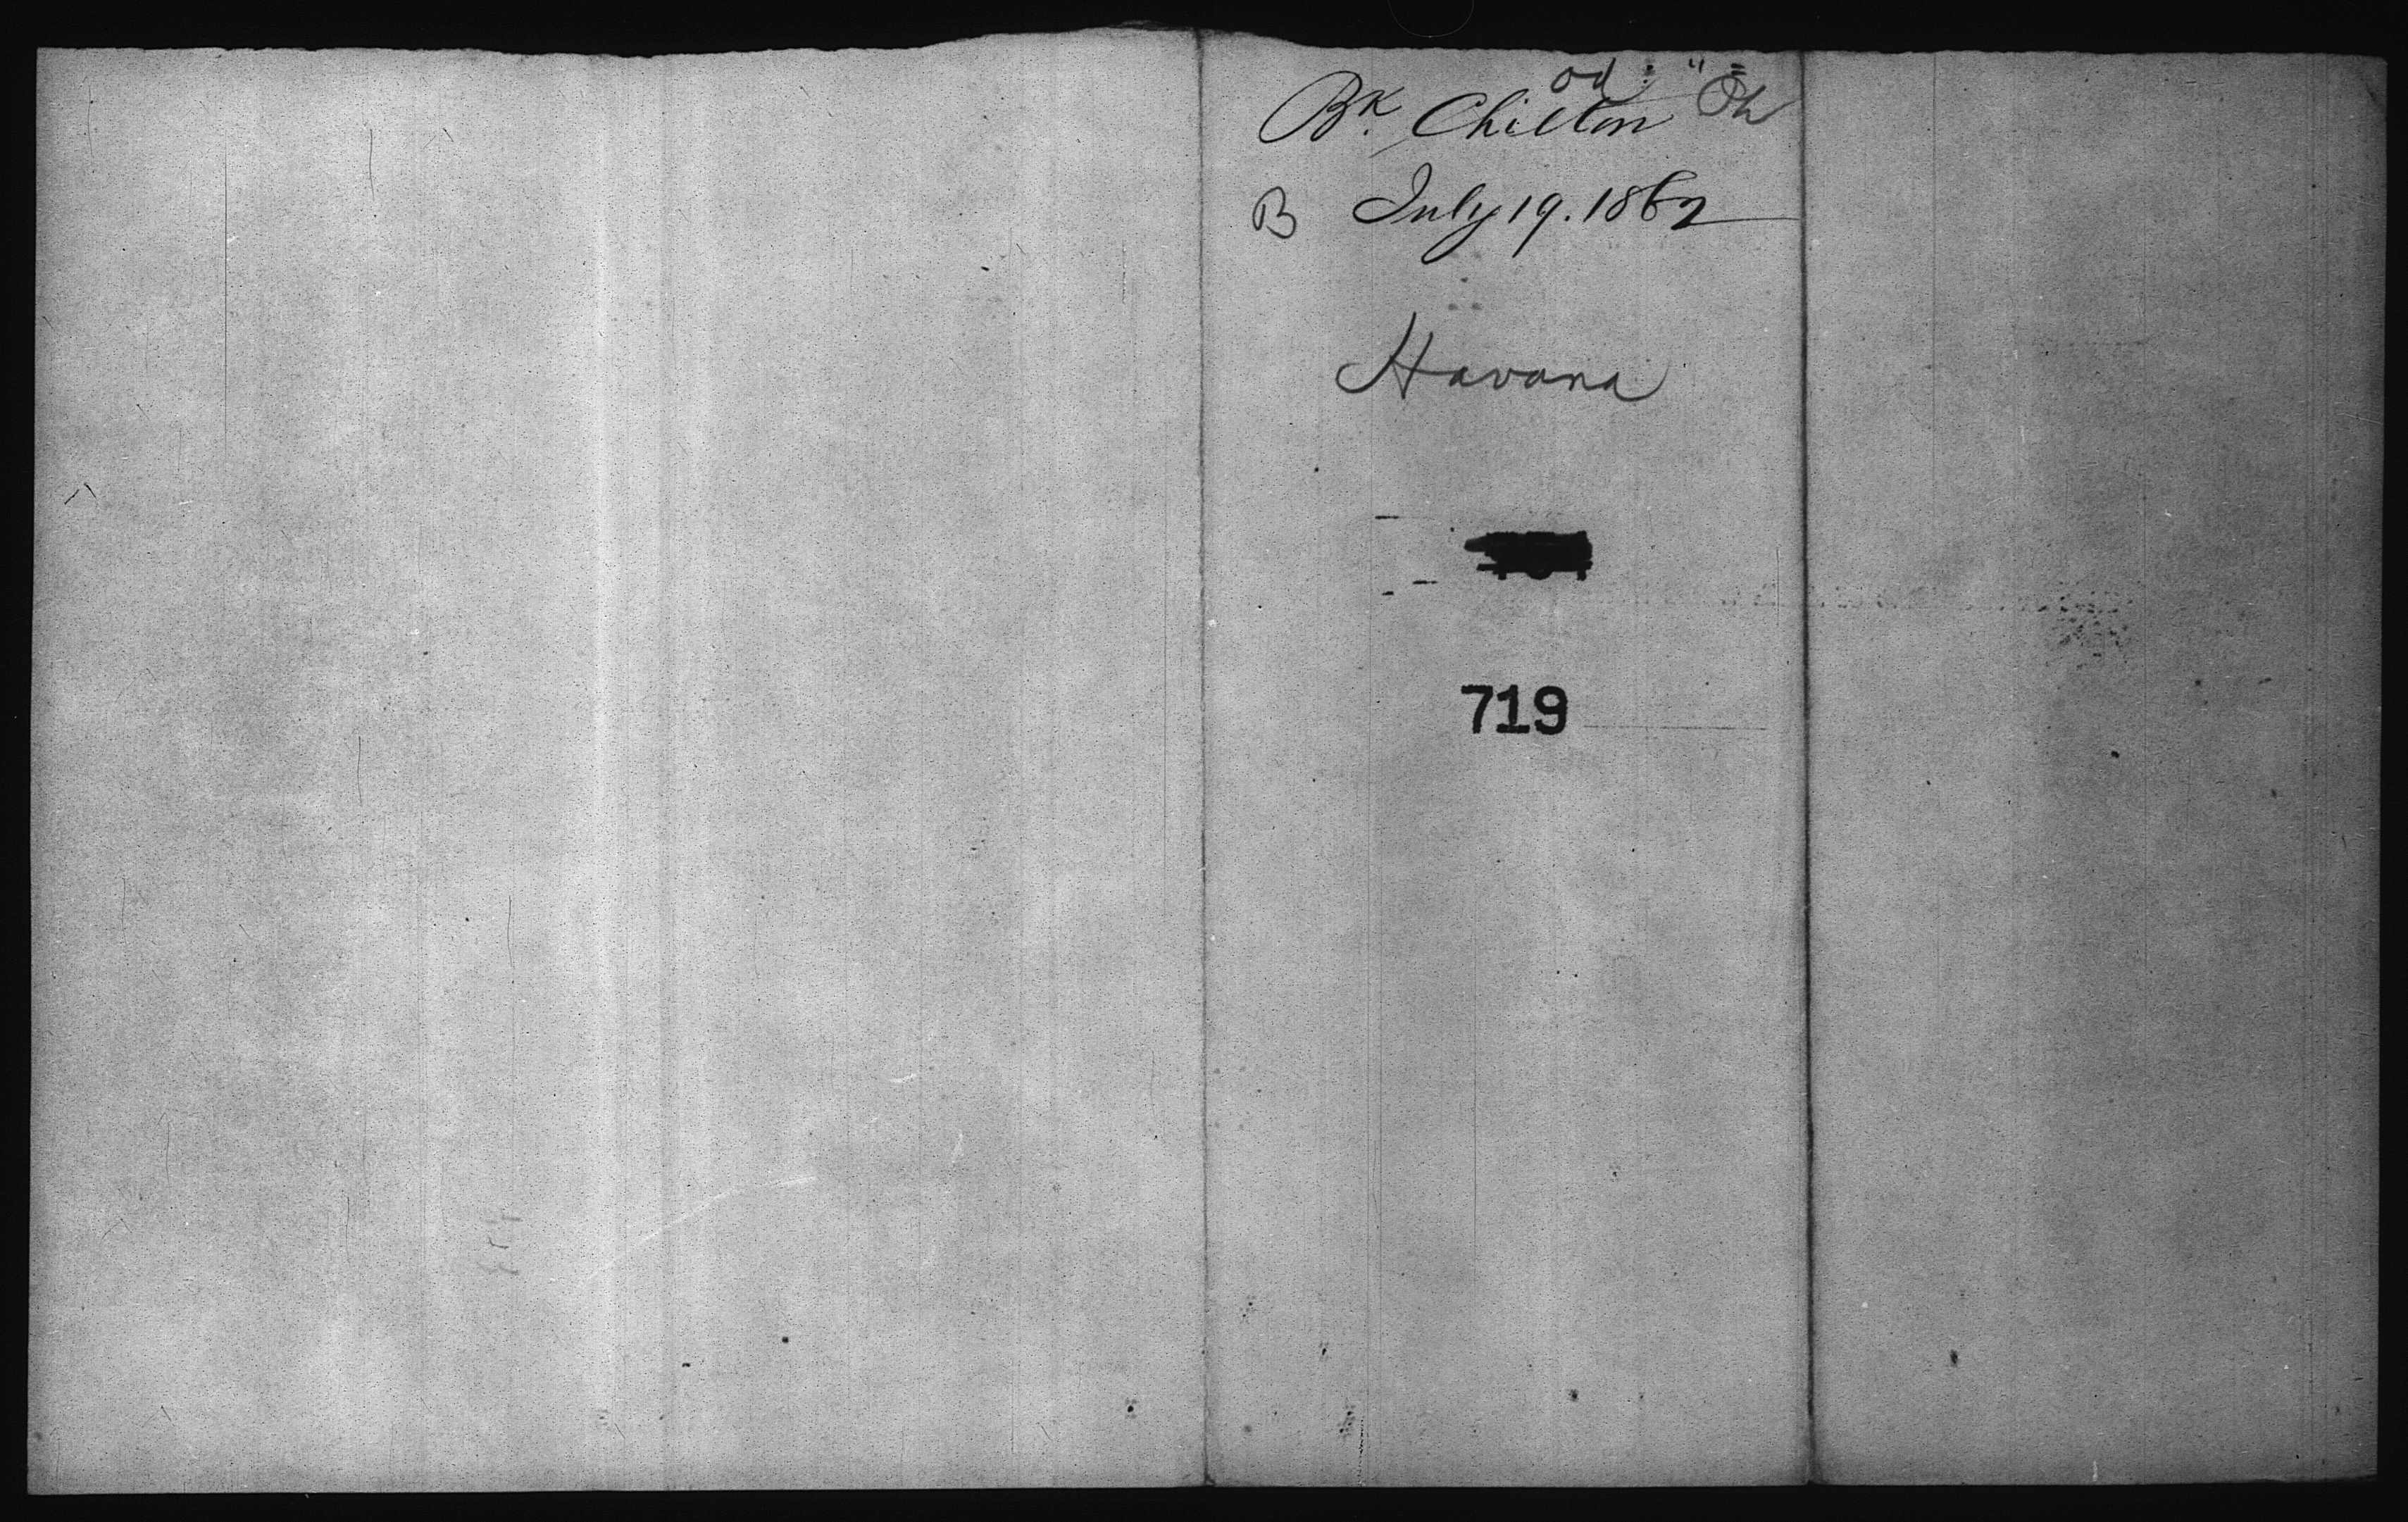 Bk. Chilton
B July 19. 1862
Havana
719